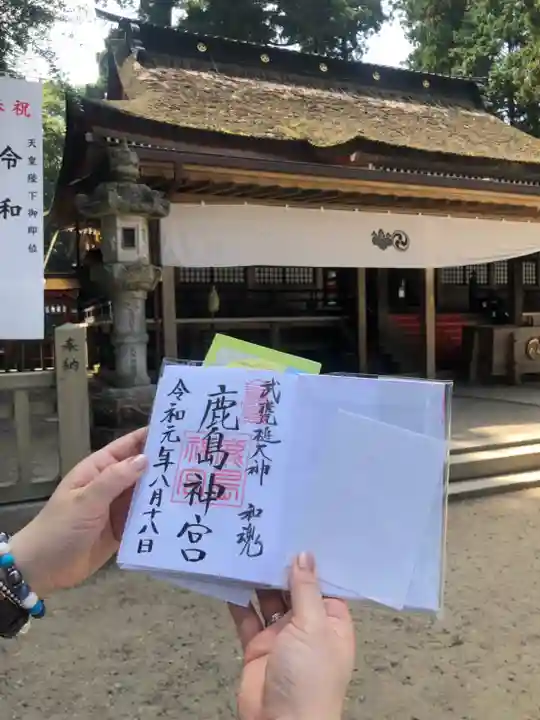 奉祝
天皇陛下御即位
令和
奉納
武甕槌大神
和魂
鹿島神宮
令和元年八月十八日